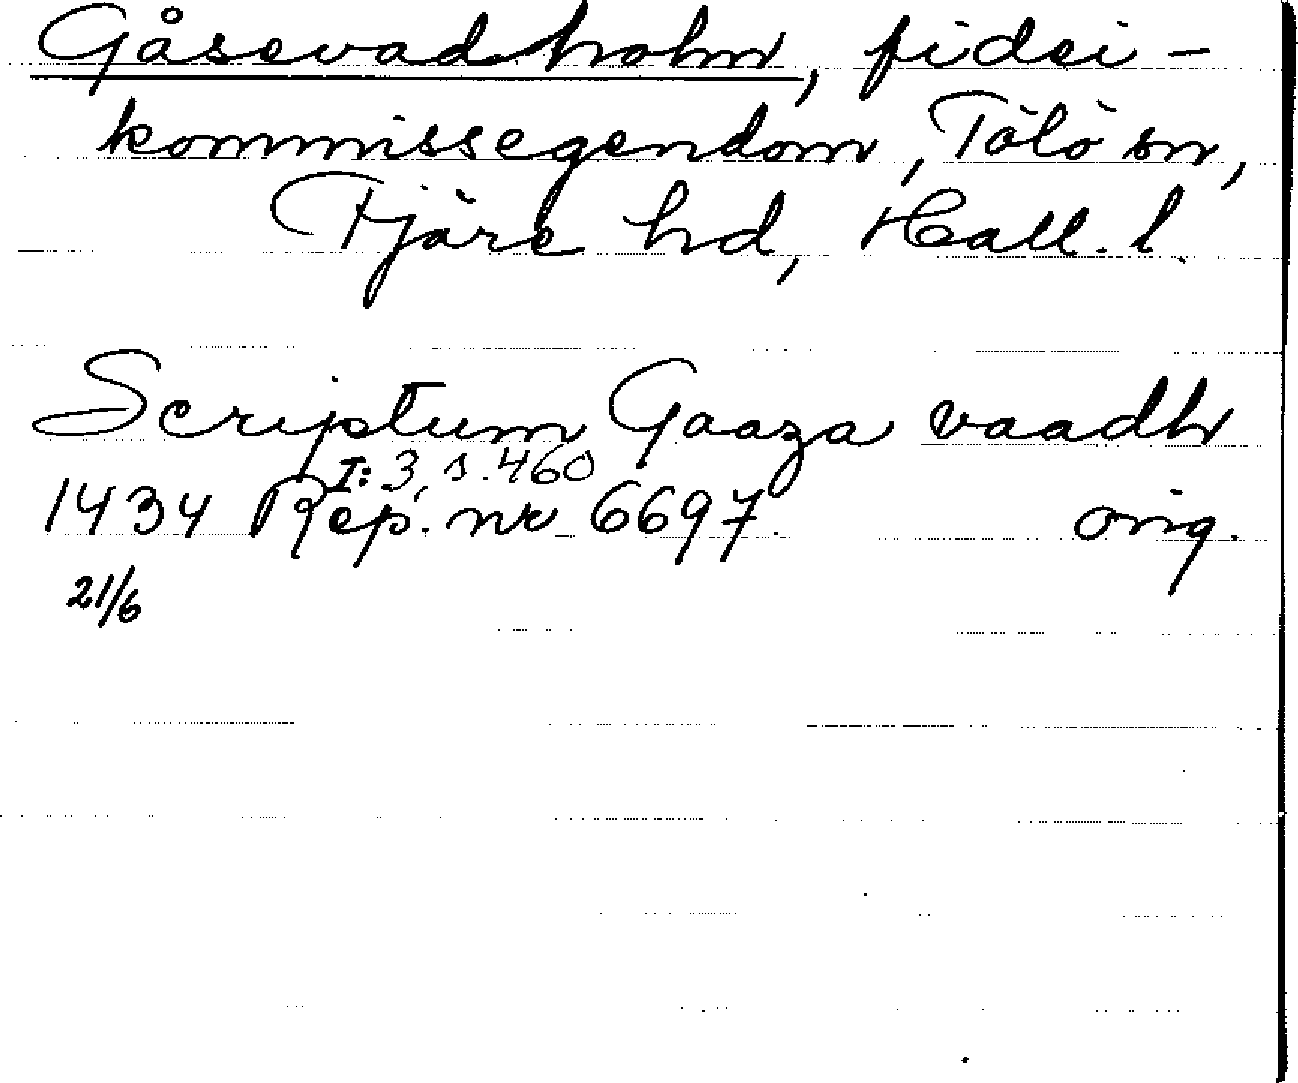 Gåsevadholm, fidei-
kommissegendom, Tölö sn,
Fjäre hd, Hall. l.
Scriptum Gaaza vaadh
I: 3, s. 460
1434 Rep. nr 6697. orig.
21/6